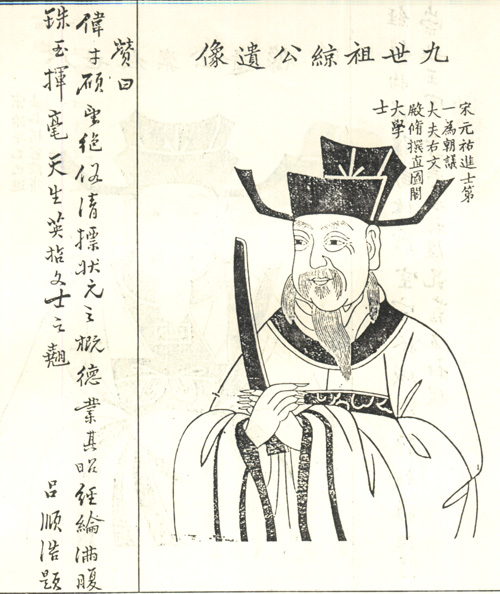 九世祖綜公遺像
宋元祐進士第
一為朝議
大夫右文
殿脩撰直國閣
大學
士
贊曰
偉才碩望絕俗清摽狀元之概德業其昭經綸滿腹
珠玉揮毫天生英哲文士之翹
呂順浩題